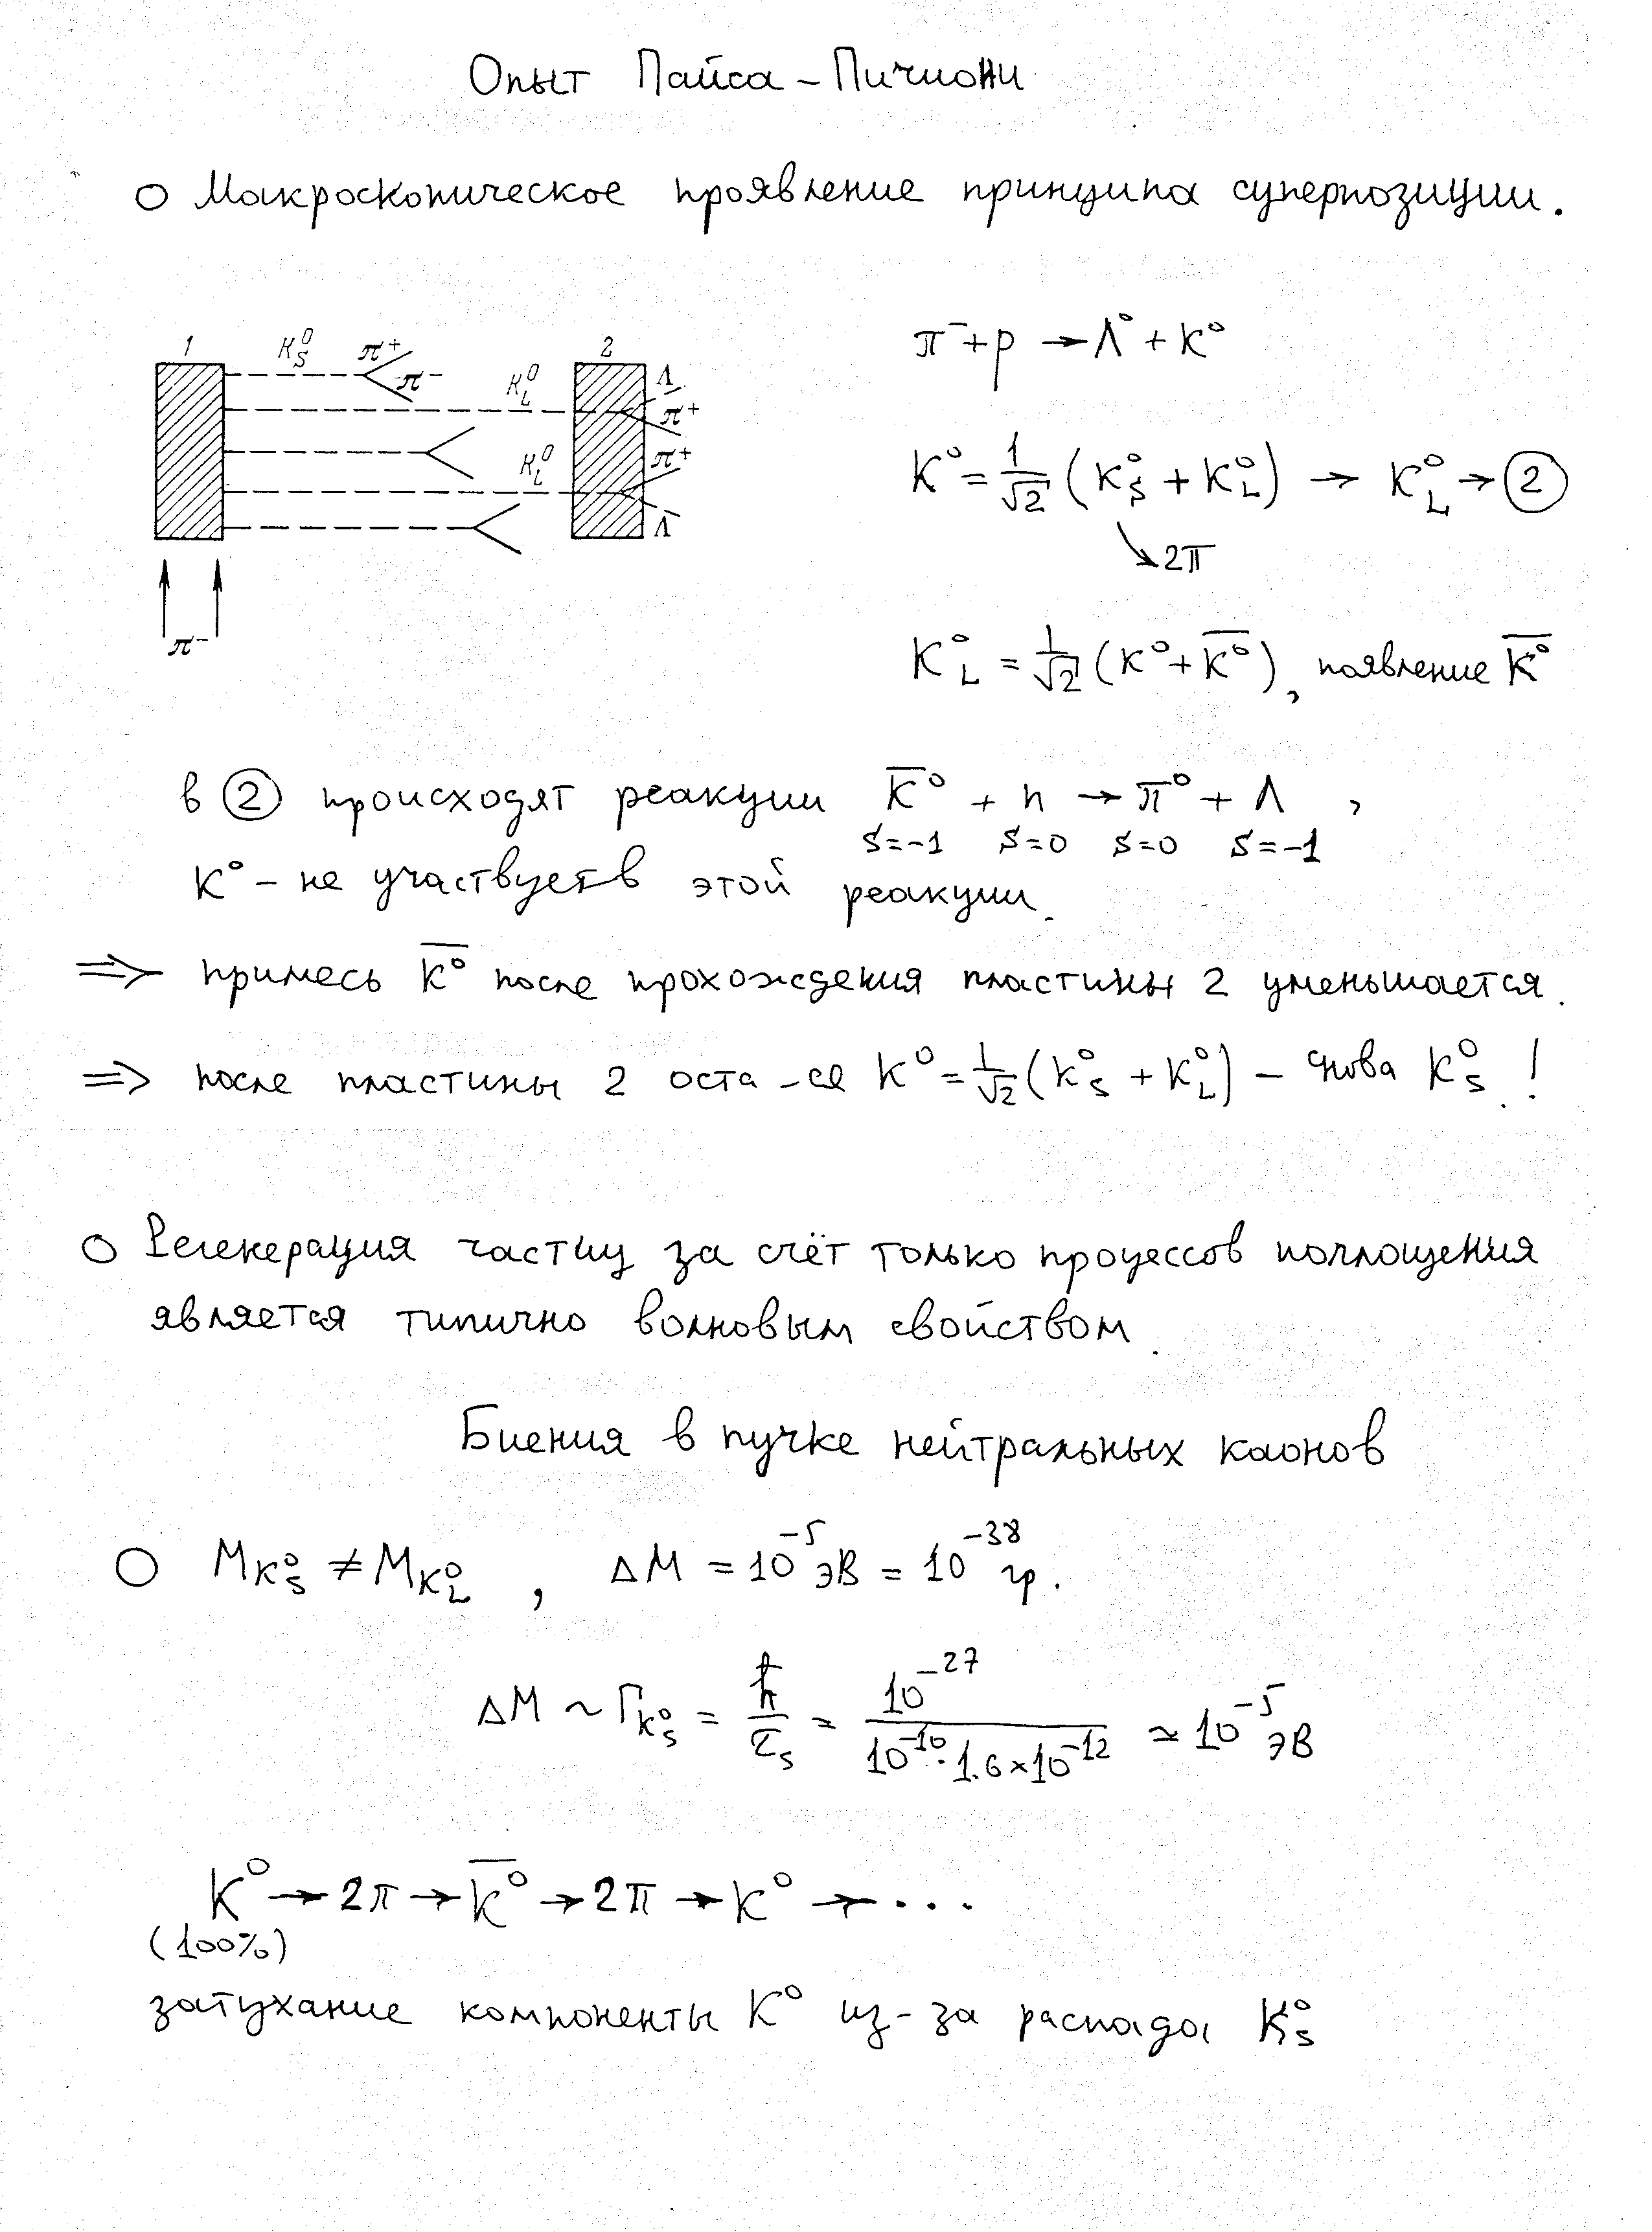 Опыт Пайса – Пичиони
○ Макроскопическое проявление принципа суперпозиции.
1 K⁰_S π⁺ π⁻ K⁰_L 2 Λ π⁺
K⁰_L π⁺ Λ
π⁻
π⁻ + p → Λ⁰ + K⁰
K⁰ = 1/√2 (K⁰_S + K⁰_L) → K⁰_L → ②
↘ 2π
K⁰_L = 1/√2 (K⁰ + K̅⁰), появление K̅⁰
в ② происходят реакции K̅⁰ + n → π⁰ + Λ ,
S=-1 S=0 S=0 S=-1
K⁰ – не участвует в этой реакции.
⇒ примесь K̅⁰ после прохождения пластины 2 уменьшается.
⇒ после пластины 2 оста-ся K⁰ = 1/√2 (K⁰_S + K⁰_L) – снова K⁰_S !
○ Регенерация частиц за счёт только процессов поглощения
является типично волновым свойством.
Биения в пучке нейтральных каонов
○ M_K⁰_S ≠ M_K⁰_L , ΔM = 10⁻⁵ эВ = 10⁻³⁸ гр.
ΔM ~ Γ_K⁰_S = ħ/τ_S = 10⁻²⁷/(10⁻¹⁰ · 1.6×10⁻¹²) ≃ 10⁻⁵ эВ
K⁰ → 2π → K̅⁰ → 2π → K⁰ → ...
(100%)
затухание компоненты K⁰ из-за распада K⁰_S